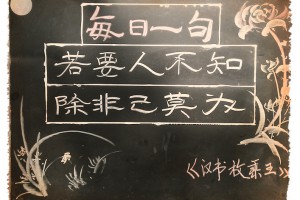 每日一句
若要人不知
除非己莫为
《汉书枚乘》